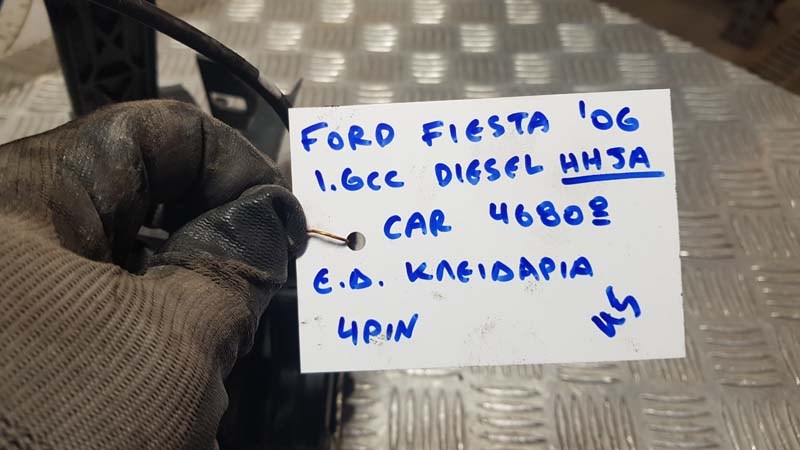 FORD FIESTA '06
1.6cc DIESEL HHJA
CAR 46808
Ε.Δ. ΚΛΕΙΔΑΡΙΑ
4PIN